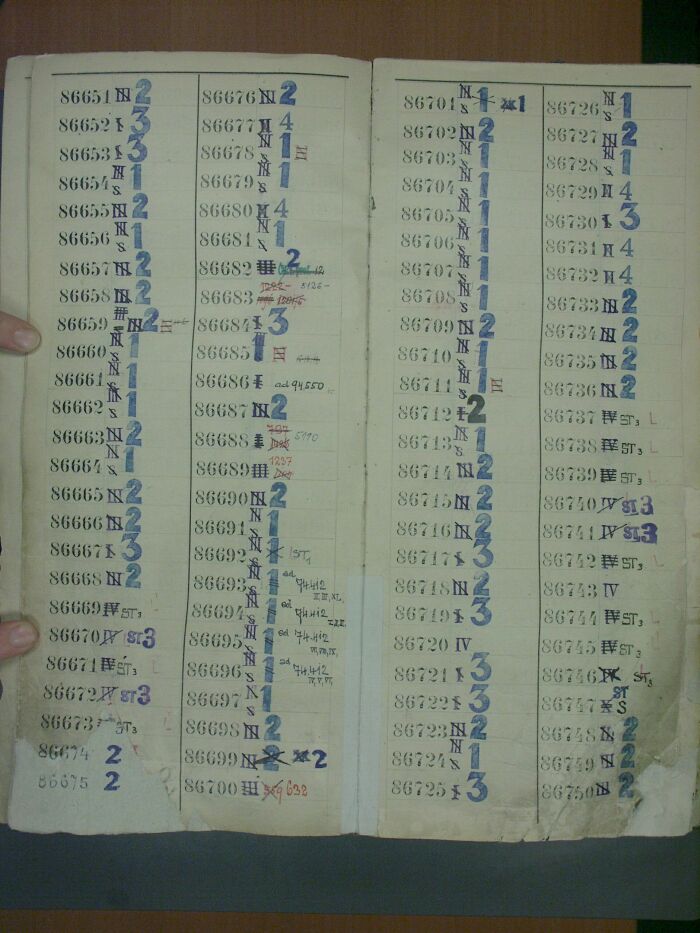 86651 2
86652 I 3
86653 I 3
86654 S 1
86655 2
86656 S 1
86657 2
86658 2
86659 2 III
86660 S 1
86661 S 1
86662 S 1
86663 2
86664 S 1
86665 2
86666 2
86667 I 3
86668 2
86669 IV ST3
86670 IV ST3
86671 IV ST3
86672 IV ST3
86673 ST3
86674 2
86675 2
86676 2
86677 4
86678 S 1 III
86679 S 1
86680 4
86681 S 1
86682 2
86683 5126-
86684 I 3
86685 1 III
86686 I ad 94550
86687 2
86688 5110
86689 III 1237
86690 2
86691 S 1
86692 S 1 ST1
86693 S 1 ad 74412
86694 S 1 ad 74412
86695 S 1 ad 74412
86696 S 1 ad 74412
86697 S 1
86698 2
86699 2 2
86700 III 632
86701 S 1 1
86702 2
86703 S 1
86704 S 1
86705 S 1
86706 S 1
86707 S 1
86708 S 1
86709 2
86710 S 1
86711 S 1 III
86712 I 2
86713 S 1
86714 2
86715 2
86716 2
86717 I 3
86718 2
86719 I 3
86720 IV
86721 I 3
86722 I 3
86723 2
86724 S 1
86725 I 3
86726 S 1
86727 2
86728 S 1
86729 4
86730 I 3
86731 4
86732 4
86733 2
86734 2
86735 2
86736 2
86737 IV ST3 L
86738 IV ST3 L
86739 IV ST3 L
86740 IV ST3
86741 IV ST3
86742 IV ST3 L
86743 IV
86744 IV ST3 L
86745 IV ST3 L
86746 IV ST3
86747 ST S
86748 2
86749 2
86750 2